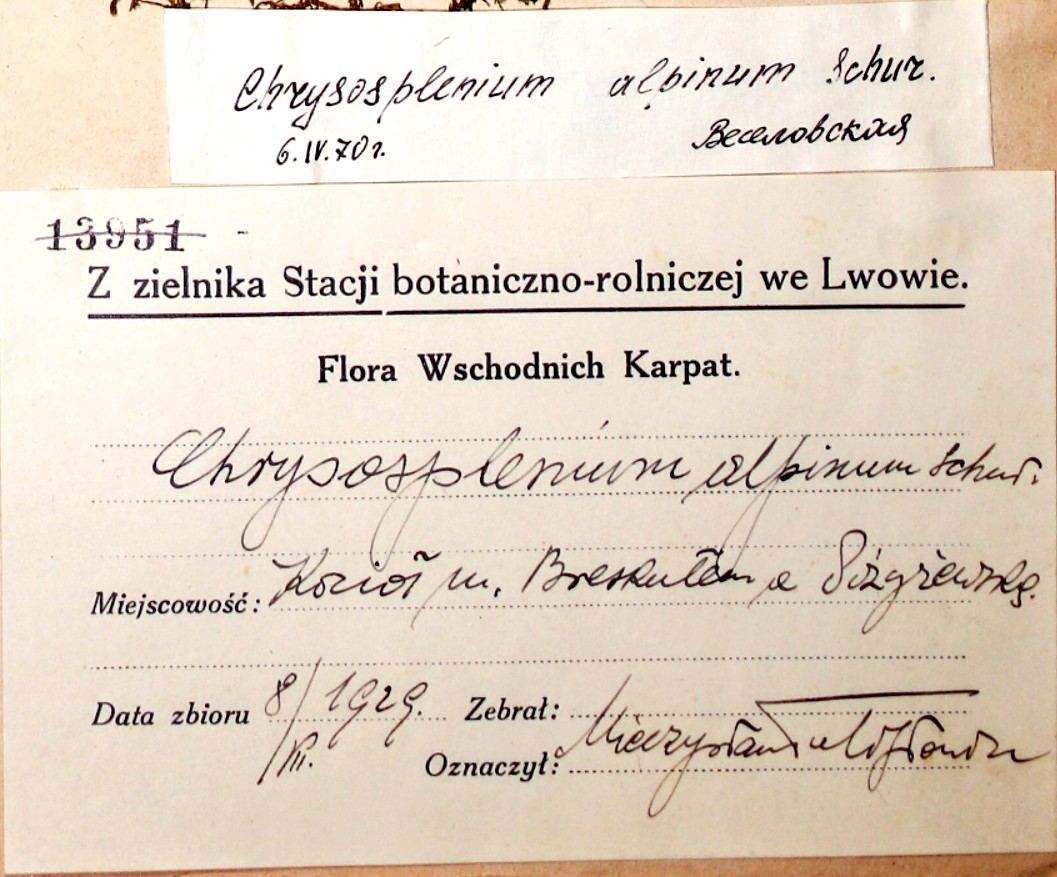 Chrysosplenium alpinum Schur.
6.IV.70г. Веселовская
13951 -
Z zielnika Stacji botaniczno-rolniczej we Lwowie.
Flora Wschodnich Karpat.
Chrysosplenium alpinum Schur.
Miejscowość: Kocioł m. Breskułem a
Data zbioru 8/ 1929. Zebrał:
Oznaczył: Mieczysław